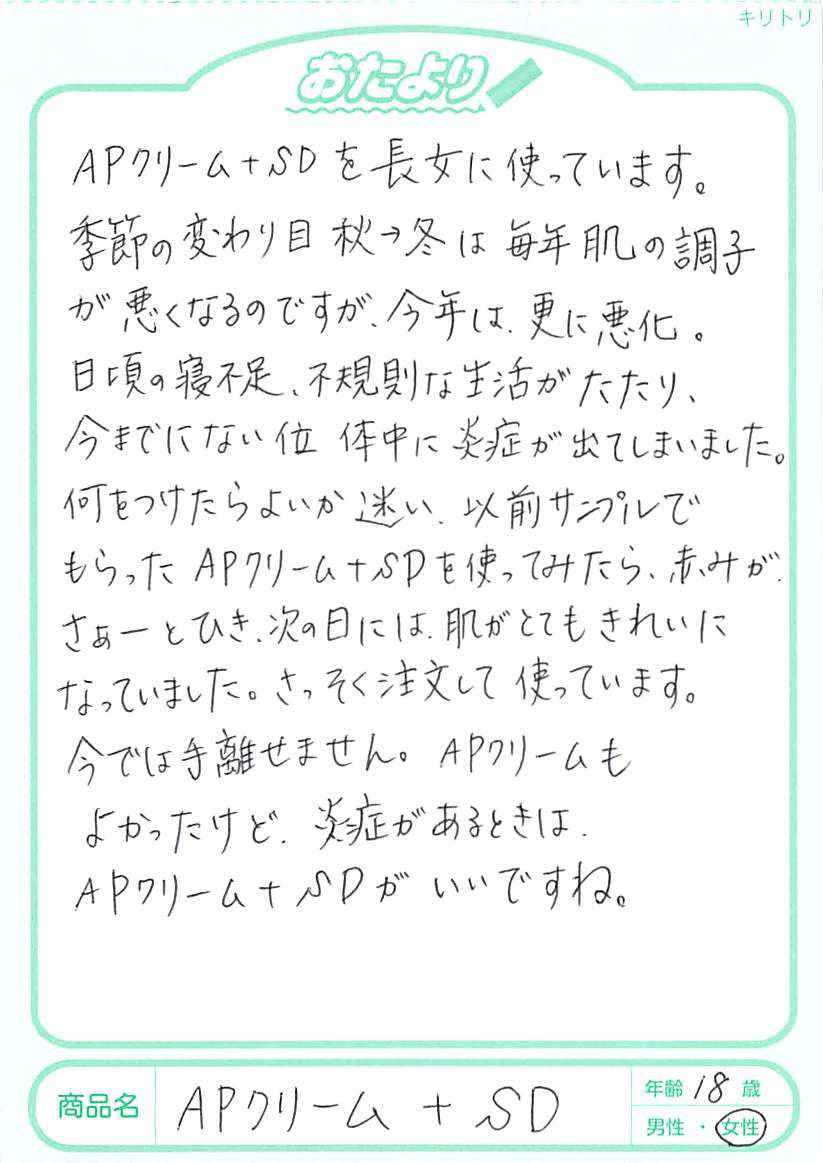 キリトリ
おたより
APクリーム+SDを長女に使っています。
季節の変わり目 秋→冬は 毎年肌の調子
が悪くなるのですが、今年は、更に悪化。
日頃の寝不足、不規則な生活がたたり、
今までにない位 体中に炎症が出てしまいました。
何をつけたらよいか迷い、以前サンプルで
もらったAPクリーム+SDを使ってみたら、赤みが、
さぁーとひき、次の日には、肌がとてもきれいに
なっていました。さっそく注文して使っています。
今では手離せません。APクリームも
よかったけど、炎症があるときは、
APクリーム+SDがいいですね。
商品名 APクリーム + SD
年齢 18 歳
男性 ・ 女性